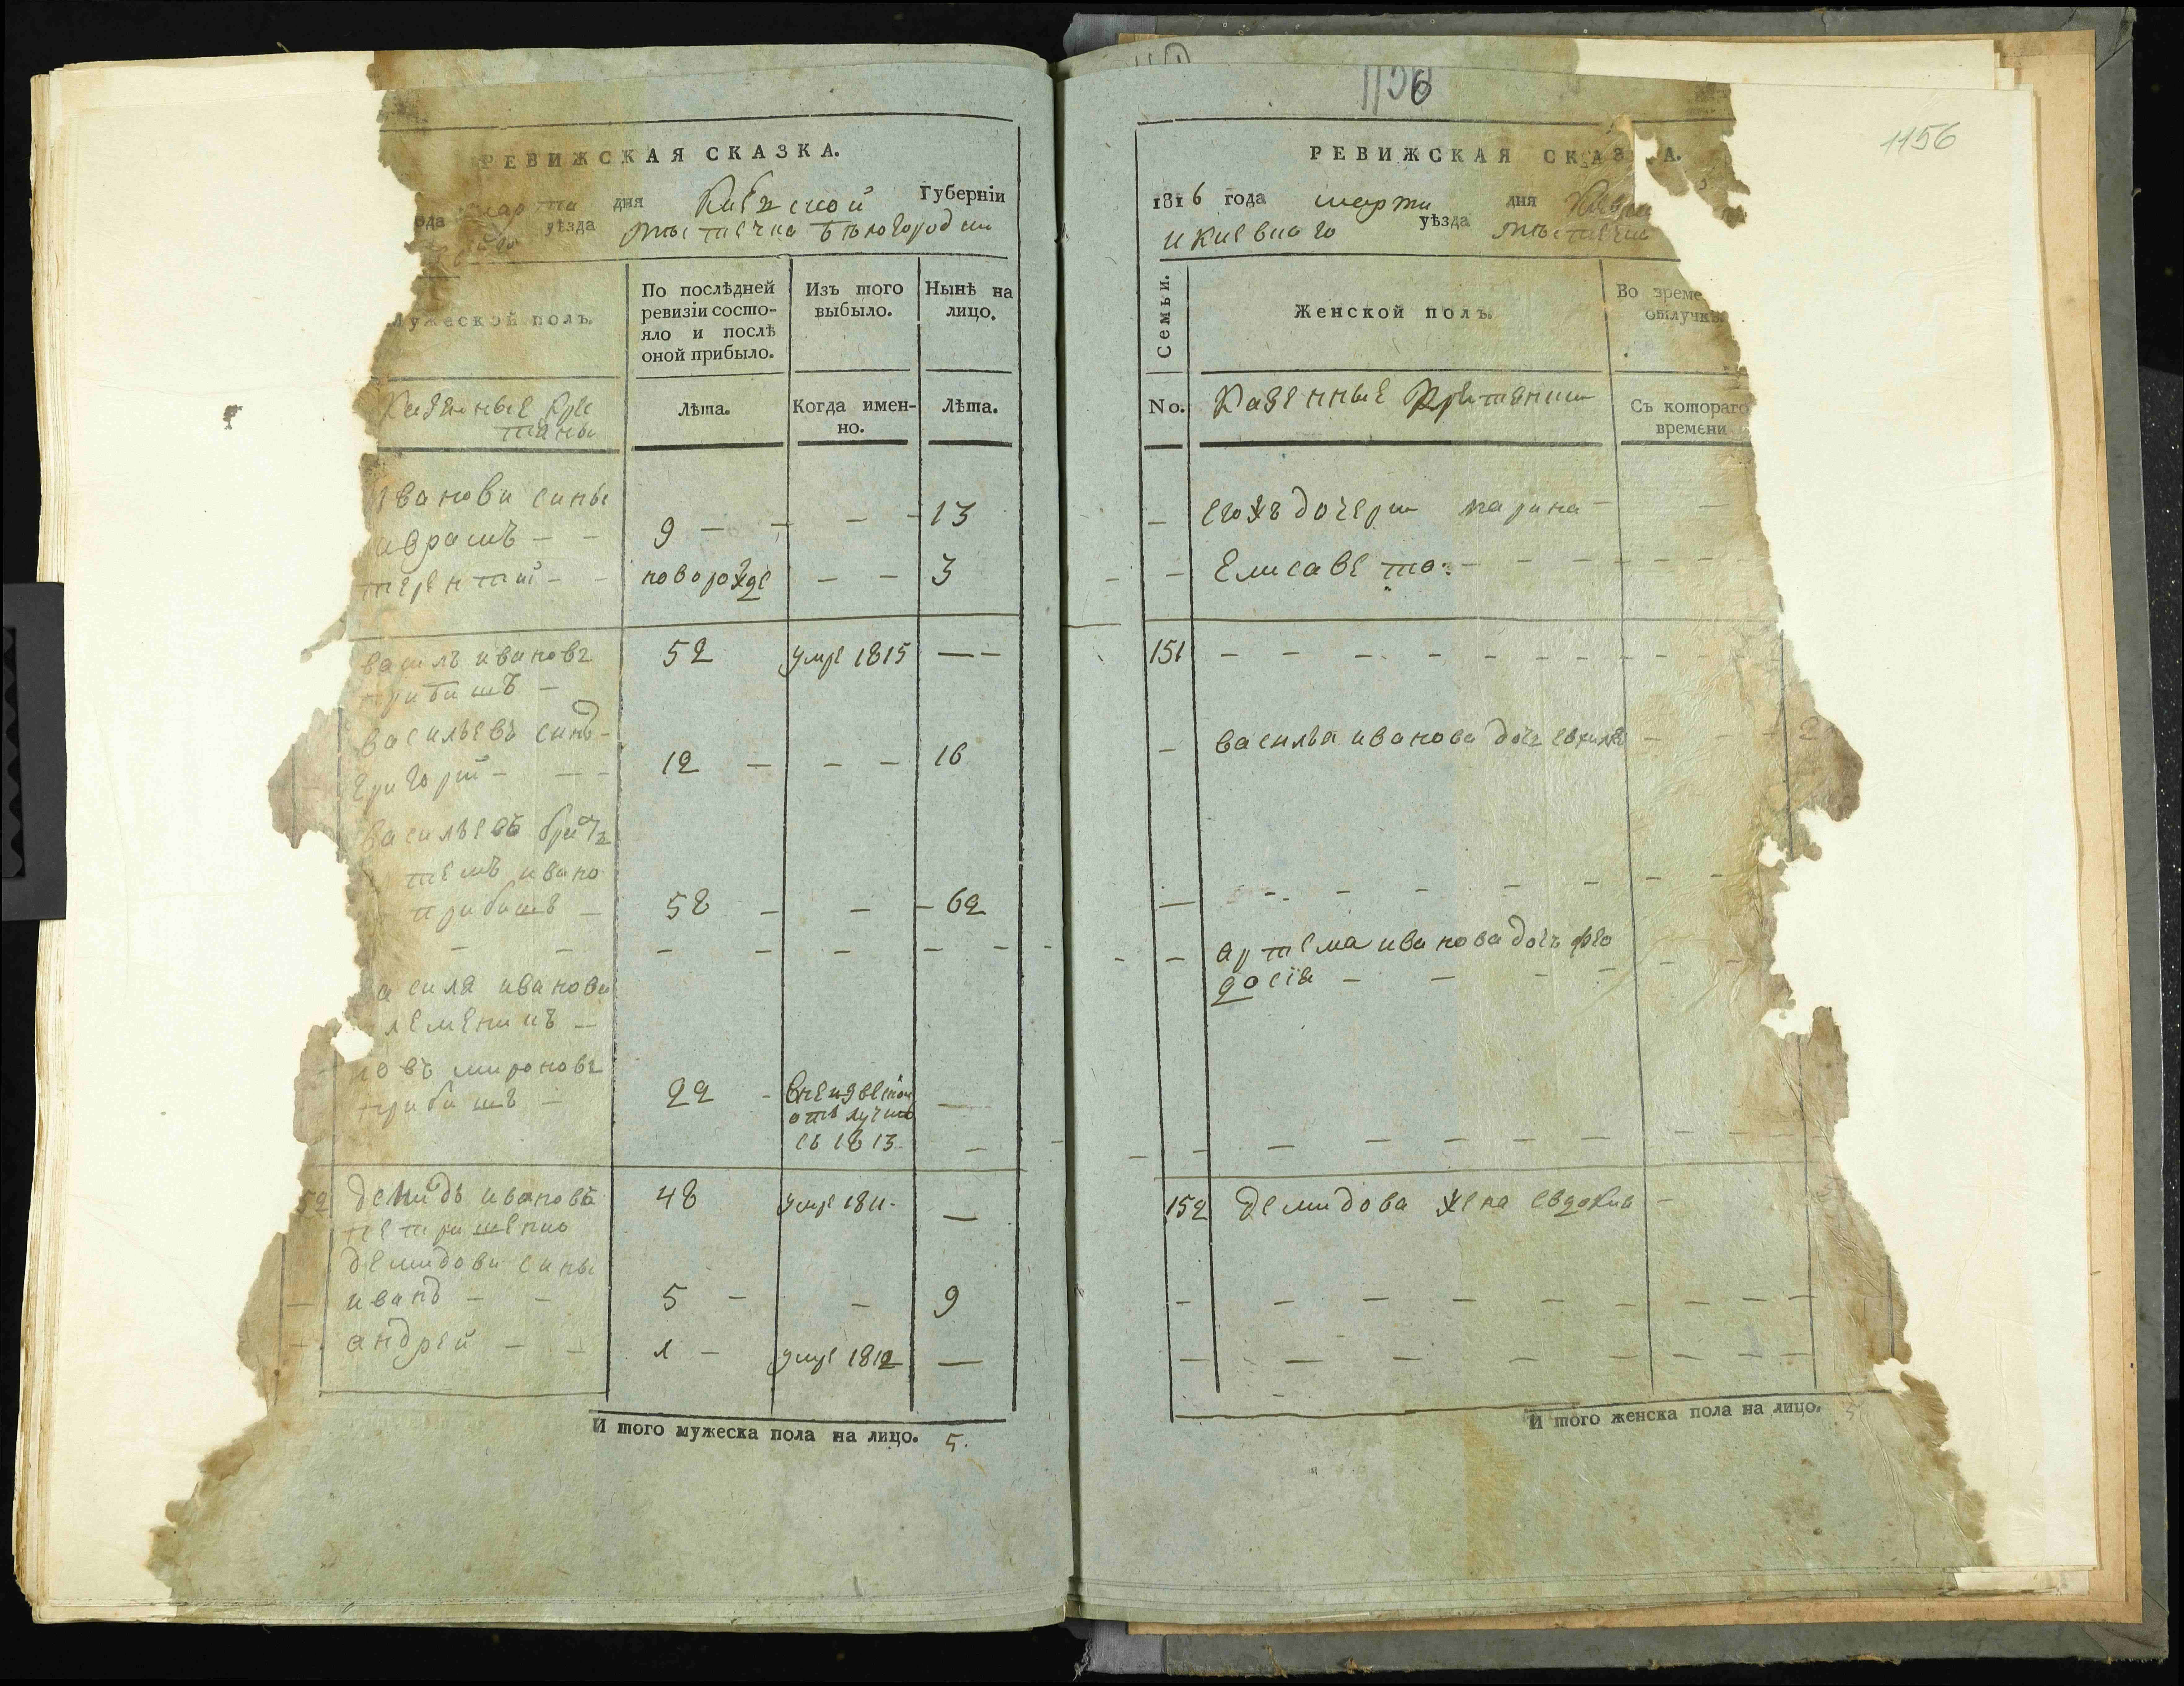 РЕВИЖСКАЯ СКАЗКА.
ода марта дня Киевской Губерніи
уѣзда мѣстечка Бѣлогородки
Мужеской полъ.
По послѣдней ревизіи состояло и послѣ оной прибыло.
Изъ того выбыло.
Нынѣ на лицо.
Казенные кре
стяны
Лѣта.
Когда именно.
Лѣта.
Иванови сины
аврамъ - - 9 - - - - 13
терентій - - новорожде - - 3
василъ ивановъ 52 умре 1815 — -
васильевъ синъ -
григорій - - - 12 - - - 16
васильевъ братъ
темъ ивано
58 - - - 62
- - - - - - -
асиля иванови
леменикъ -
овъ мироновъ
22 -
отлучки —
съ 1813 -
52 демидъ ивановъ 48 умре 1811. —
петришенко
демидови сины
- иванъ - - 5 - - 9
- андрей - - 1 - умре 1812 —
И того мужеска пола на лицо. 5.
1156
1156
РЕВИЖСКАЯ СКАЗ А.
1816 года марта дня
и киевнаго уѣзда мѣстечка
Семьи.
Женской полъ.
Во време
отлучкѣ
No.
Казенные
Съ котораго времени
- егожъ дочери марина -
- Елисавета - - - - -
151 - - - - - - - -
- василья иванова дочь - - - 2
— - - - - - - -
- артема иванова дочь фео
досія - - - - - -
- - - - - - - -
152 демидова жена евдокия -
- - - - - - - - -
- - - - - - - -
И того женска пола на лицо. 5